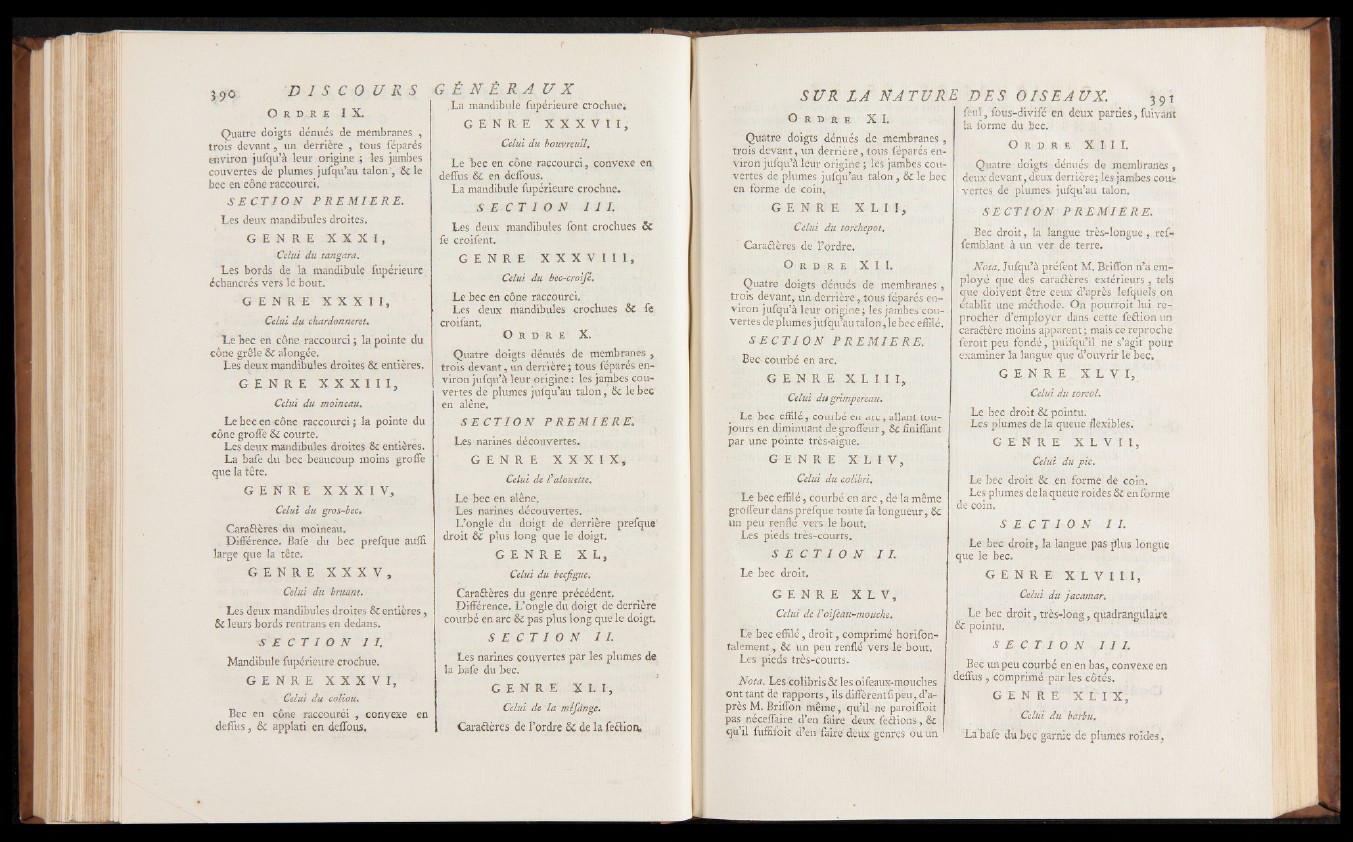 390 DISCOURS GÉNÉRAUX
ORDRE IX.
Quatre doigts dénués de membranes ,
trois devant, un derrière , tous féparés
environ jufqu'à leur origine ; les jambes
couvertes de plumes jufqu'au talon, & le
bec en cône raccourci.
SECTION PREMIERE.
Les deux mandibules droites.
GENRE XXXI,
Celui du tangara.
Les bords de la mandibule fupérieure
échancrés vers le bout.
GENRE XXXII,
Celui du chardonneret.
Le bec en cône raccourci ; la pointe du
cône grêle & alongée.
Les deux mandibules droites & entières.
GENRE XXXIII,
Celui du moineau.
Le bec en cône raccourci ; la pointe du
cône groffe & courte.
Les deux mandibules droites & entières.
La bafe du bec beaucoup moins groffe
que la tête.
GENRE XXXIV,
Celui du gros-bec.
Caractères du moineau.
Différence. Bafe du bec prefque auffi
large que la tête.
GENRE XXXV,
Celui du bruant.
Les deux mandibules droites & entières,
& leurs bords rentrans en dedans.
SECTION II.
Mandibule fupérieure crochue.
GENRE XXXVI,
Celui du coliou.
Bec en cône raccourci , convexe en
deffus, & applati en deffous.
La mandibule fupérieure crochue.
GENRE XXXVII,
Celui du bouvreuil.
Le bec en cône raccourci, convexe en
deffus & en deffous.
La mandibule fupérieure crochue.
SECTION III.
Les deux mandibules font crochues &
fe croifent.
GENRE XXXVIII,
Celui du bec-croifé.
Le bec en cône raccourci.
Les deux mandibules crochues & fe
croifant.
ORDRE X.
Quatre doigts dénués de membranes ,
trois devant, un derrière; tous féparés en-
viron jufqu'à leur origine: les jambes cou-
vertes de plumes jufqu'au talon, & le bec
en alêne.
SECTION PREMIERE.
Les narines découvertes.
GENRE XXXIX,
Celui de l'alouette.
Le bec en alêne.
Les narines découvertes.
L'ongle du doigt de derrière prefque
droit & plus long que le doigt.
GENRE XL,
Celui du becfigue.
Caractères du genre précédent.
Différence. L'ongle du doigt de derrière
courbé en arc & pas plus long que le doigt.
SECTION II.
Les narines couvertes par les plumes de
la bafe du bec.
GENRE XLI,
Celui de la méfange.
Caractères de l'ordre & de la fection.
SUR LA NATURE DES OISEAUX. 391
ORDRE XI.
Quatre doigts dénués de membranes,
trois devant, un derrière, tous féparés en-
viron jufqu'à leur origine ; les jambes cou-
vertes de plumes jufqu'au talon, & le bec
en forme de coin.
GENRE XLII,
Celui du torchepot.
Caractères de l'ordre.
ORDRE XII.
Quatre doigts dénués de membranes,
trois devant, un derrière, tous féparés en-
viron jufqu'à leur origine; les jambes cou-
vertes de plumes jufqu'au talon, le bec effilé.
SECTION PREMIERE.
Bec courbé en arc.
GENRE XLIII,
Celui du grimpereau.
Le bec effilé, courbé en arc, allant tou-
jours en diminuant de groffeur, & finiffant
par une pointe très-aigue.
GENRE XLIV,
Celui du colibri.
Le bec effilé, courbé en arc, de la même
groffeur dans prefque toute fa longueur, &
un peu renflé vers le bout.
Les pieds très-courts.
SECTION II.
Le bec droit.
GENRE XLV,
Celui de l'oifeau-mouche.
Le bec effilé, droit, comprimé horifon-
talement, & un peu renflé vers le bout.
Les pieds très-courts.
Nota. Les colibris & les oifeaux-mouches
ont tant de rapports, ils diffèrent fi peu, d'a-
près M. Briffon même, qu'il ne paroiffoit
pas néceffaire d'en faire deux fections, &
qu'il fuffifoit d'en faire deux genres ou un
feul, fous-divifé en deux parties, fuivant
la forme du bec.
ORDRE XIII.
Quatre doigts dénués de membranes,
deux devant, deux derrière; les jambes cou-
vertes de plumes jufqu'au talon.
SECTION PREMIERE.
Bec droit, la langue très-longue, ref-
femblant à un ver de terre.
Nota. Jufqu'à préfent M. Briffon n'a em-
ployé que des caractères extérieurs, tels
que doivent être ceux d'après lefquels on
établit une méthode. On pourroit lui re-
procher d'employer dans cette fection un
caractère moins apparent; mais ce reproche
feroit peu fondé, puifqu'il ne s'agit pour
examiner la langue que d'ouvrir le bec.
GENRE XLVI,
Celui du torcol.
Le bec droit & pointu.
Les plumes de la queue flexibles.
GENRE XLVII,
Celui du pic.
Le bec droit & en forme de coin.
Les plumes de la queue roides & en forme
de coin.
SECTION II.
Le bec droit, la langue pas plus longue
que le bec.
GENRE XLVIII,
Celui du jacamar.
Le bec droit, très-long, quadrangulaire
& pointu.
SECTION III.
Bec un peu courbé en en bas, convexe en
deffus, comprimé par les côtés.
GENRE XLIX,
Celui du barbu.
La bafe du bec garnie de plumes roides,